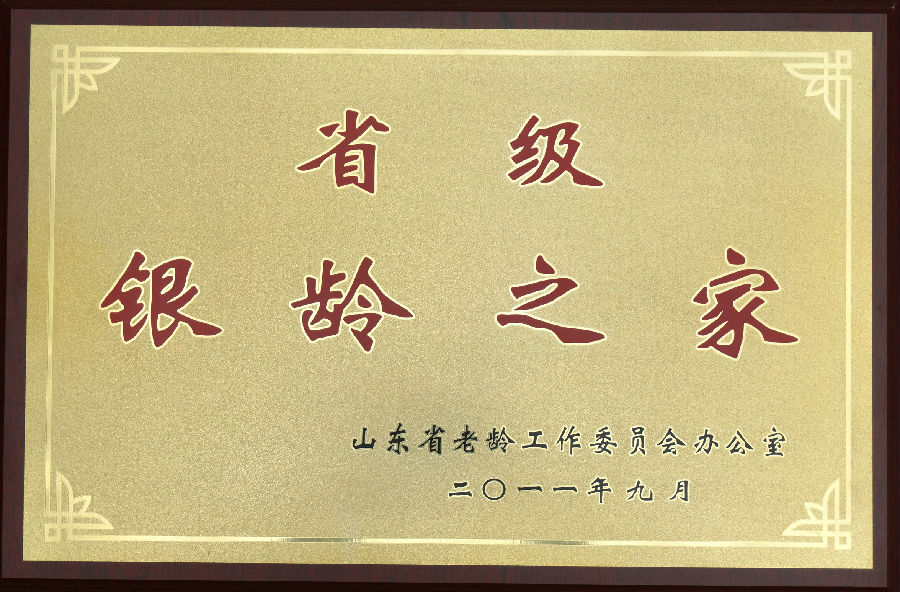 省级
银龄之家
山东省老龄工作委员会办公室
二〇一一年九月